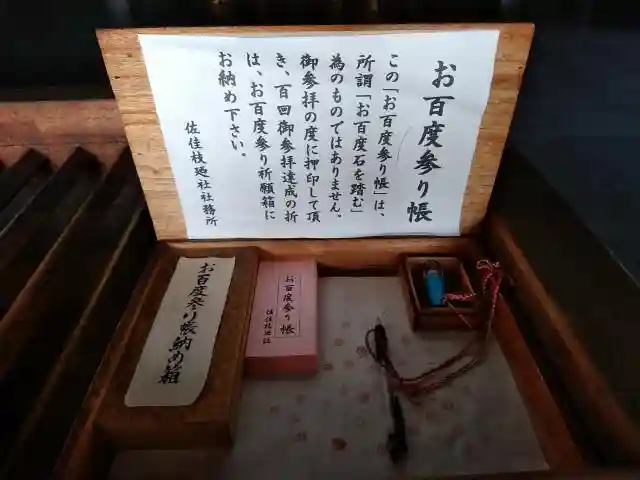 お百度参り帳
この「お百度参り帳」は、
所謂「お百度石を踏む」
為のものではありません。
御参拝の度に押印して頂
き、百回御参拝達成の折
は、お百度参り祈願箱に
お納め下さい。
佐佳枝廼社社務所
お百度参り帳
佐佳枝廼社
お百度参り帳納め箱